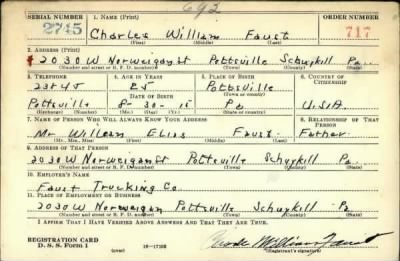 692
SERIAL NUMBER 1. NAME (Print) ORDER NUMBER
2745 Charles William Faust 717
(First) (Middle) (Last)
2. ADDRESS (Print)
2030 W Norweigan St Pottsville Schuykill Pa.
(Number and street or R. F. D. number) (Town) (County) (State)
3. TELEPHONE 4. AGE IN YEARS 5. PLACE OF BIRTH 6. COUNTRY OF CITIZENSHIP
2384J 25 Pottsville
DATE OF BIRTH (Town or county)
Pottsville 8-30-15 Pa U.S.A.
(Exchange) (Number) (Mo.) (Day) (Yr.) (State or country)
7. NAME OF PERSON WHO WILL ALWAYS KNOW YOUR ADDRESS 8. RELATIONSHIP OF THAT PERSON
Mr William Elias Faust Father
(Mr., Mrs., Miss) (First) (Middle) (Last)
9. ADDRESS OF THAT PERSON
2030 W Norweigan St Pottsville Schuykill Pa.
(Number and street or R. F. D. number) (Town) (County) (State)
10. EMPLOYER'S NAME
Faust Trucking Co.
11. PLACE OF EMPLOYMENT OR BUSINESS
2030 W Norweigan Pottsville Schuykill Pa
(Number and street or R. F. D. number) (Town) (County) (State)
I AFFIRM THAT I HAVE VERIFIED ABOVE ANSWERS AND THAT THEY ARE TRUE.
REGISTRATION CARD
D. S. S. Form 1 (over) 16-17105 Charles William Faust
(Registrant's signature)